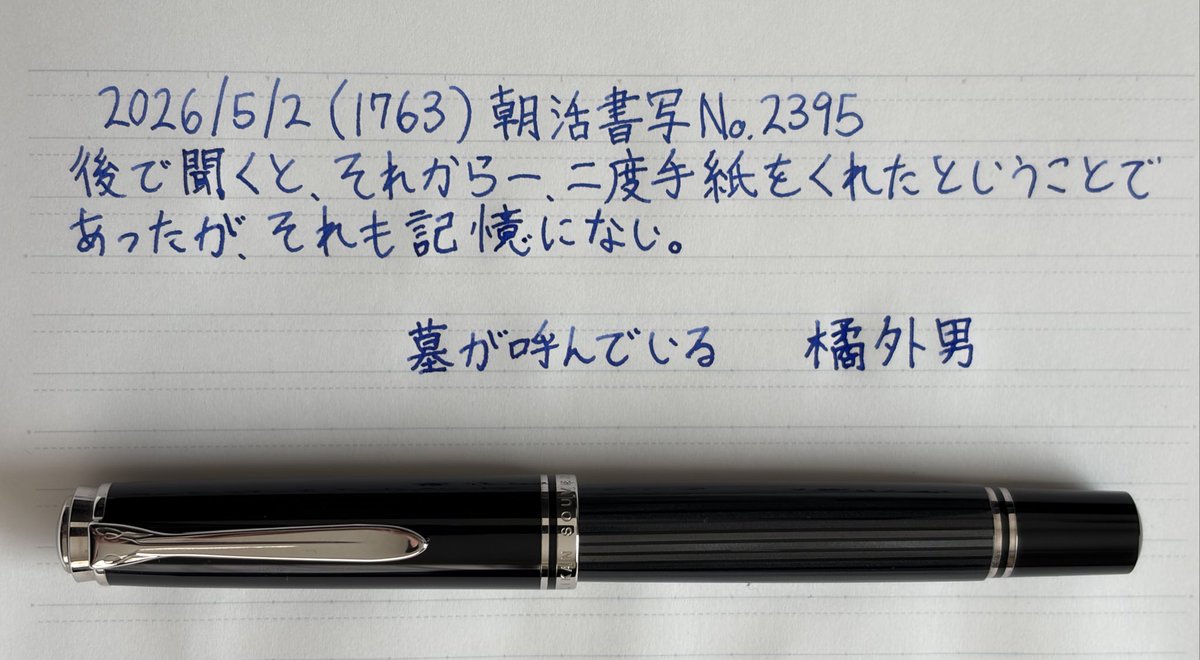 2026/5/2(1763)朝活書写No.2395
後で聞くと、それから一、二度手紙をくれたということで
あったが、それも記憶にない。
墓が呼んでいる　橘外男
KAN SOUVE